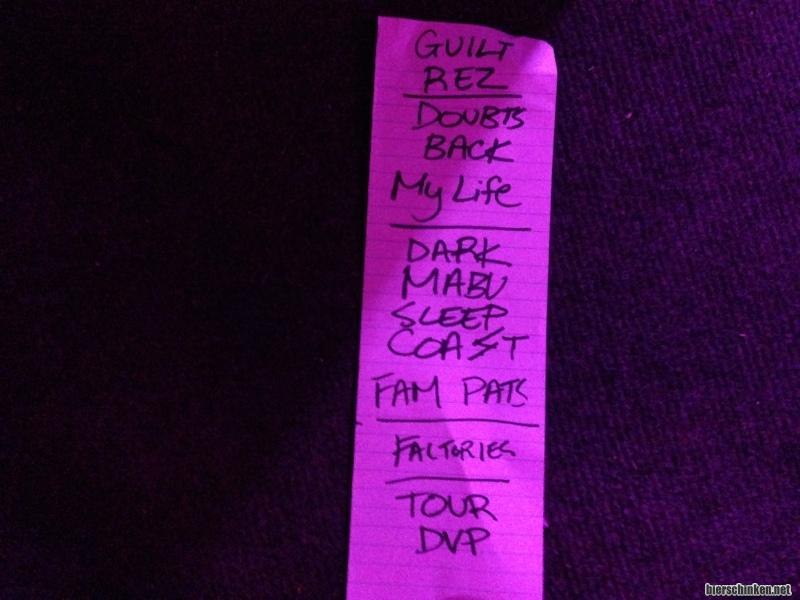 GUILT
REZ
DOUBTS
BACK
My Life
DARK
MABU
SLEEP
COAST
FAM PATS
FACTORIES
TOUR
DVP
bierschinken.net